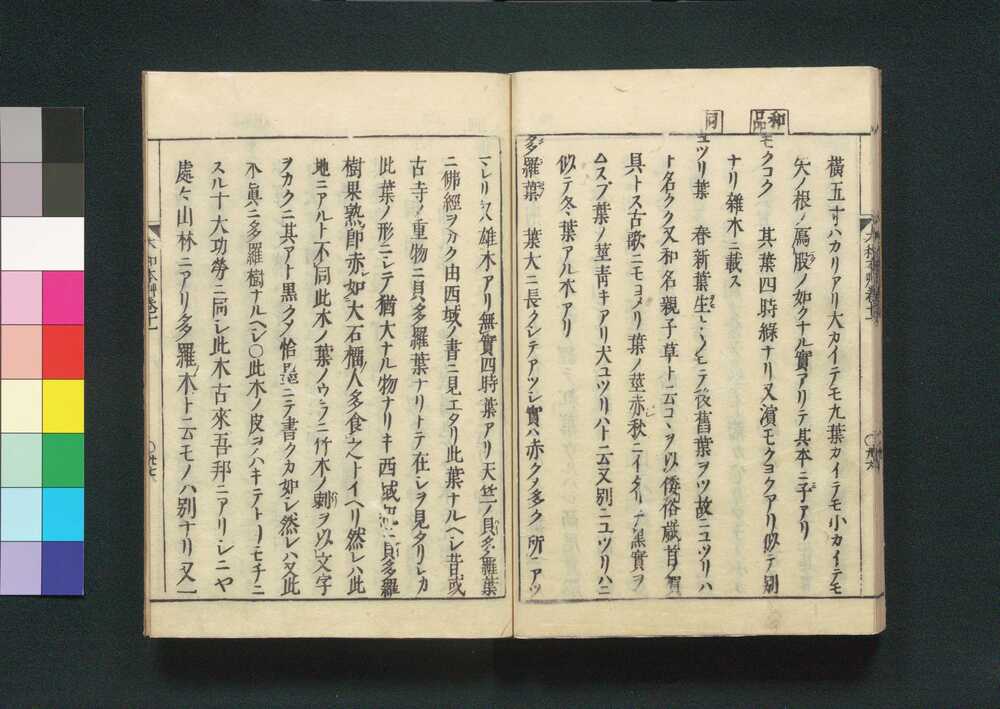 横五寸ハカリアリ大カイテモ九葉カイテモ小カイテモ
矢ノ根ノ鴈股ノ如クナル實アリテ其本ニ子アリ
和品
モクコク 其葉四時緑ナリ又濱モクヨクアリ似テ別
ナリ雜木ニ載ス
同
ユツリ葉 春新葉生シトヽノヒテ後舊葉ヲツ故ニユツリハ
ト名クク又和名親子草ト云コヽヲ以倭俗歳首ノ賀
具トス古歌ニモヨメリ葉ノ莖赤秋ニイタリテ黒實ヲ
ムスブ葉ノ莖靑キアリ犬ユツリハト云又別ニユツリハニ
似テ冬葉アル木アリ
多羅葉 葉大ニ長クシテアツシ實ハ赤クノ多ク所ニアツ
マレリ又雄木アリ無實四時葉アリ天竺ノ貝多羅葉
ニ佛經ヲカク由西域ノ書ニ見エタリ此葉ナルヘシ昔或
古寺ノ重物ニ貝多羅葉ナリトテ在シヲ見タリシカ
此葉ノ形ニシテ猶大ナル物ナリキ西域記ニ貝多羅
樹果熟即赤如大石榴人多食之トイヘリ然レハ此
地ニアルト不同此木ノ葉ノウラニ竹木ノ刺ヲ以文字
ヲカクニ其アト黒クメ恰墨ニテ書クカ如シ然レハ又此
木眞ニ多羅樹ナルヘシ〇此木ノ皮ヲハキテトリモチニ
スル十大功勞ニ同シ此木古來吾邦ニアリシニヤ
處々山林ニアリ多羅木ト云モノハ別ナリ又一
大和本草卷十一
〇廿七